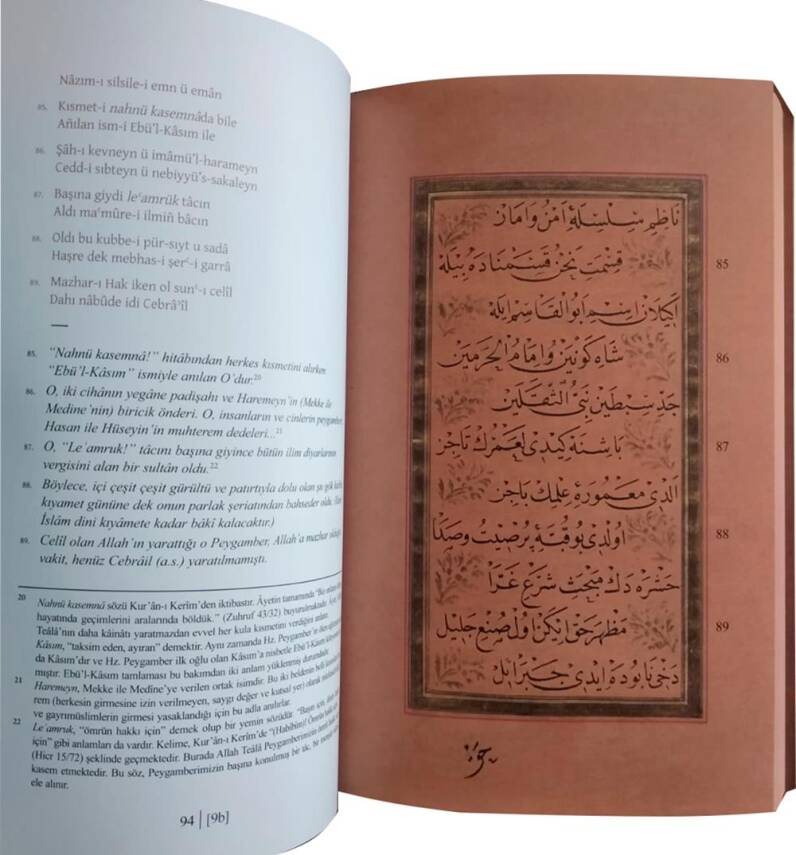 Nâzım-ı silsile-i emn ü emân
85. Kısmet-i nahnü kasemnâda bile
Añılan ism-i Ebü’l-Kâsım ile
86. Şâh-ı kevneyn ü imâmü’l-harameyn
Cedd-i sıbteyn ü nebiyyü’s-sakaleyn
87. Başına giydi leʿamrük tâcın
Aldı maʿmûre-i ilmiñ bâcın
88. Oldı bu kubbe-i pür-sıyt u sadâ
Haşre dek mebhas-i şerʿ-i garrâ
89. Mazhar-ı Hak iken ol sunʿ-ı celîl
Dahı nâbûde idi Cebrâʾîl
85. “Nahnü kasemnâ!” hitâbından herkes kısmetini alırken
“Ebü’l-Kâsım” ismiyle anılan O’dur.20
86. O, iki cihânın yegâne padişahı ve Haremeyn’in (Mekke ile
Medine’nin) biricik önderi. O, insanların ve cinlerin peygamberi,
Hasan ile Hüseyin’in muhterem dedeleri...21
87. O, “Leʿamruk!” tâcını başına giyince bütün ilim diyarlarının
vergisini alan bir sultân oldu.22
88. Böylece, içi çeşit çeşit gürültü ve patırtıyla dolu olan şu gök
kıyamet gününe dek onun parlak şeriatından bahseder oldu.
İslâm dini kıyâmete kadar bâkî kalacaktır.)
89. Celîl olan Allah’ın yarattığı o Peygamber, Allah’a mazhar olduğu
vakit, henüz Cebrâil (a.s.) yaratılmamıştı.
20 Nahnü kasemnâ sözü Kur’ân-ı Kerîm’den iktibastır. Âyetin tamamında “Biz
hayatında geçimlerini aralarında böldük.” (Zuhruf 43/32) buyurulmaktadır.
Teâlâ’nın daha kâinâtı yaratmazdan evvel her kula kısmetini verdiğini
Kâsım, “taksim eden, ayıran” demektir. Aynı zamanda Hz. Peygamber’in
da Kâsım’dır ve Hz. Peygamber ilk oğlu olan Kâsım’a nisbetle Ebü’l-Kâsım
mıştır. Ebü’l-Kâsım tamlaması bu bakımdan iki anlam yüklenmiş durumdadır.
21 Haremeyn, Mekke ile Medine’ye verilen ortak isimdir. Bu iki beldenin
rem (herkesin girmesine izin verilmeyen, saygı değer ve kutsal yer)
ve gayrımüslimlerin girmesi yasaklandığı için bu adla anılırlar.
22 Leʿamruk, “ömrün hakkı için” demek olup bir yemin sözüdür. “Başın için,
için” gibi anlamları da vardır. Kelime, Kur’ân-ı Kerîm’de “(Habîbim)!
(Hicr 15/72) şeklinde geçmektedir. Burada Allah Teâlâ Peygamberimizin
kasem etmektedir. Bu söz, Peygamberimizin başına konulmuş bir tâc,
ele alınır.
94 | [9b]
ناظم سلسلهٔ امن و امان
قسمت نحن قسمناده بیله 85
اکیلان اسم ابو القاسم ایله
شاه کونین و امام الحرمین 86
جد سبطین نبی الثقلین
باشنه کیدی لعمرك تاجن 87
الدی معمورهٔ علمك باجن
اولدی بو قبهٔ پرصیت و صدا 88
حشره دك مبحث شرع غرا
مظهر حق ایکن اول صنع جلیل 89
دخی نابوده ایدی جبرائیل